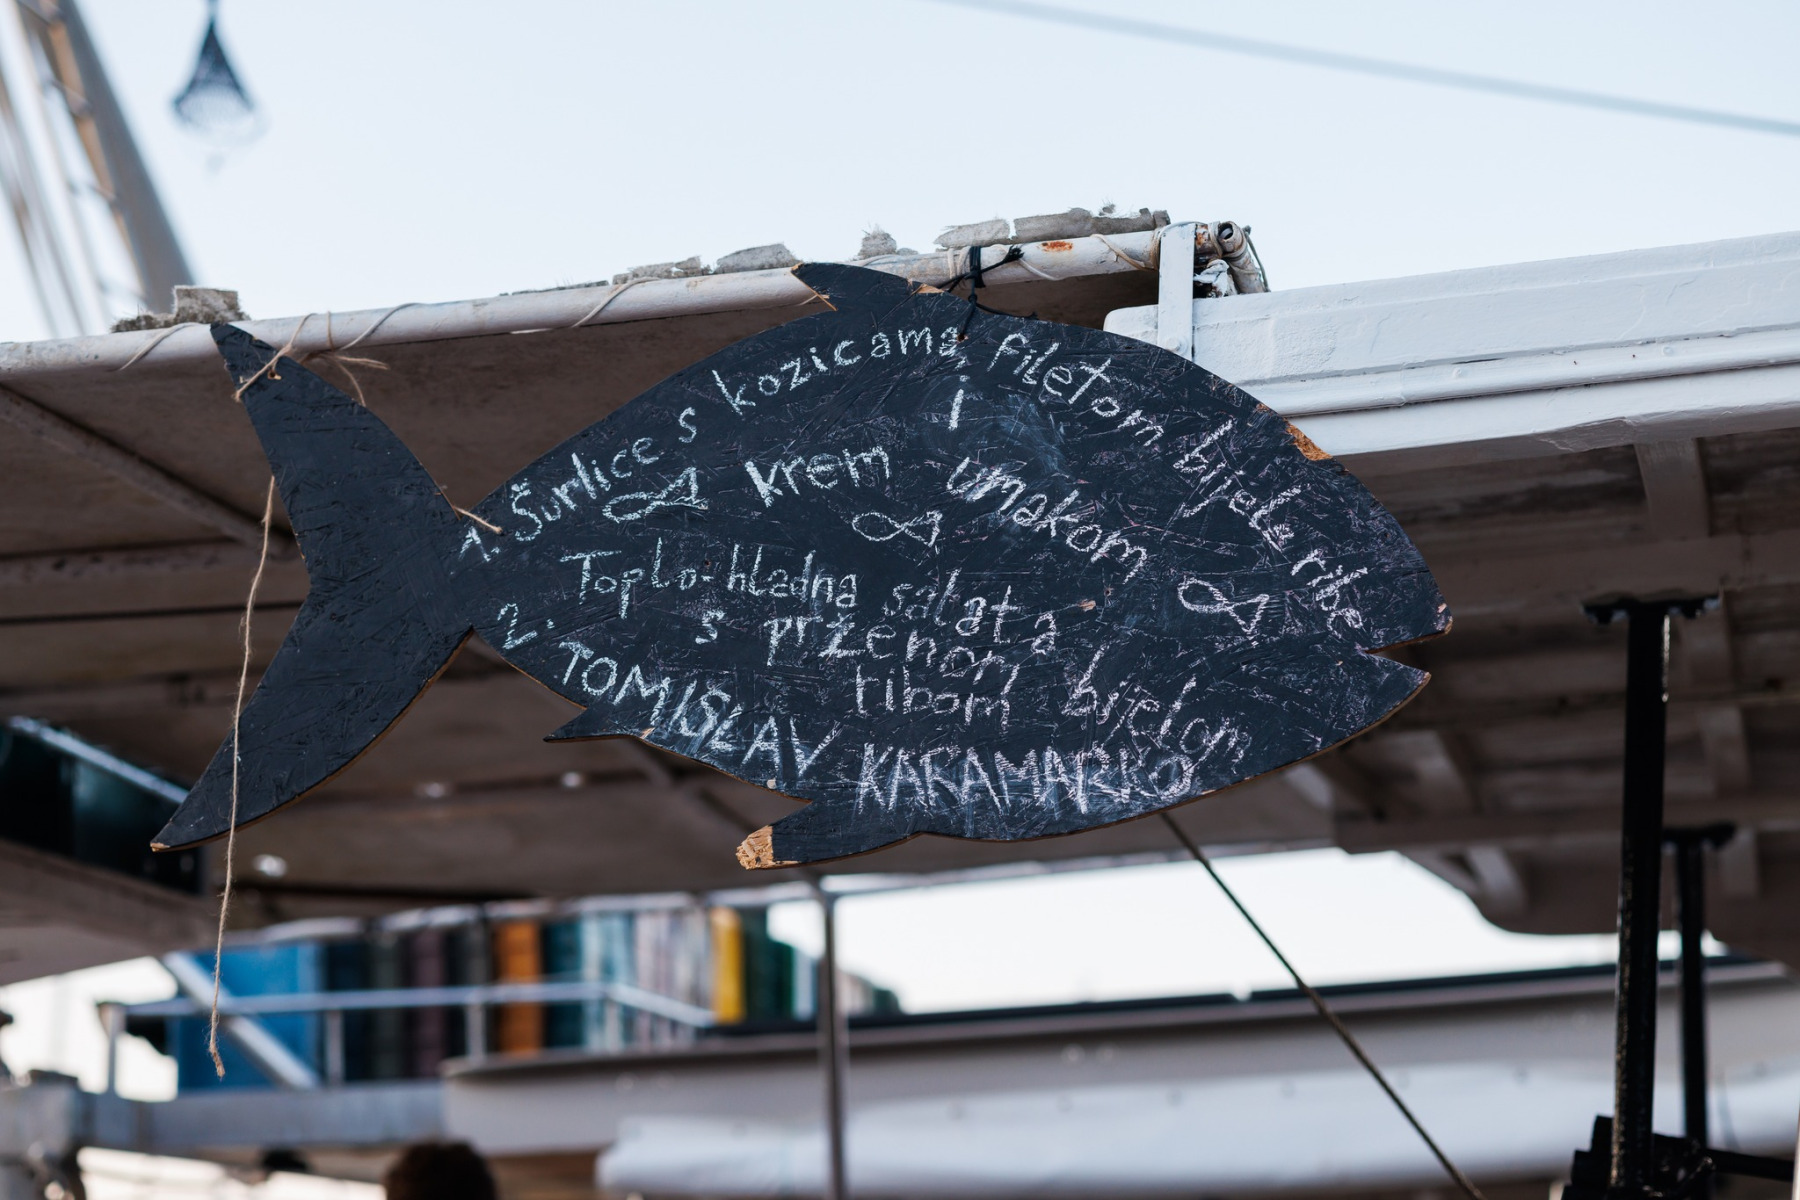 1. Šurlice s kozicama, filetom bijele ribe
i krem umakom
2. Toplo-hladna salata
s prženom bijelom
ribom
TOMISLAV KARAMARKO